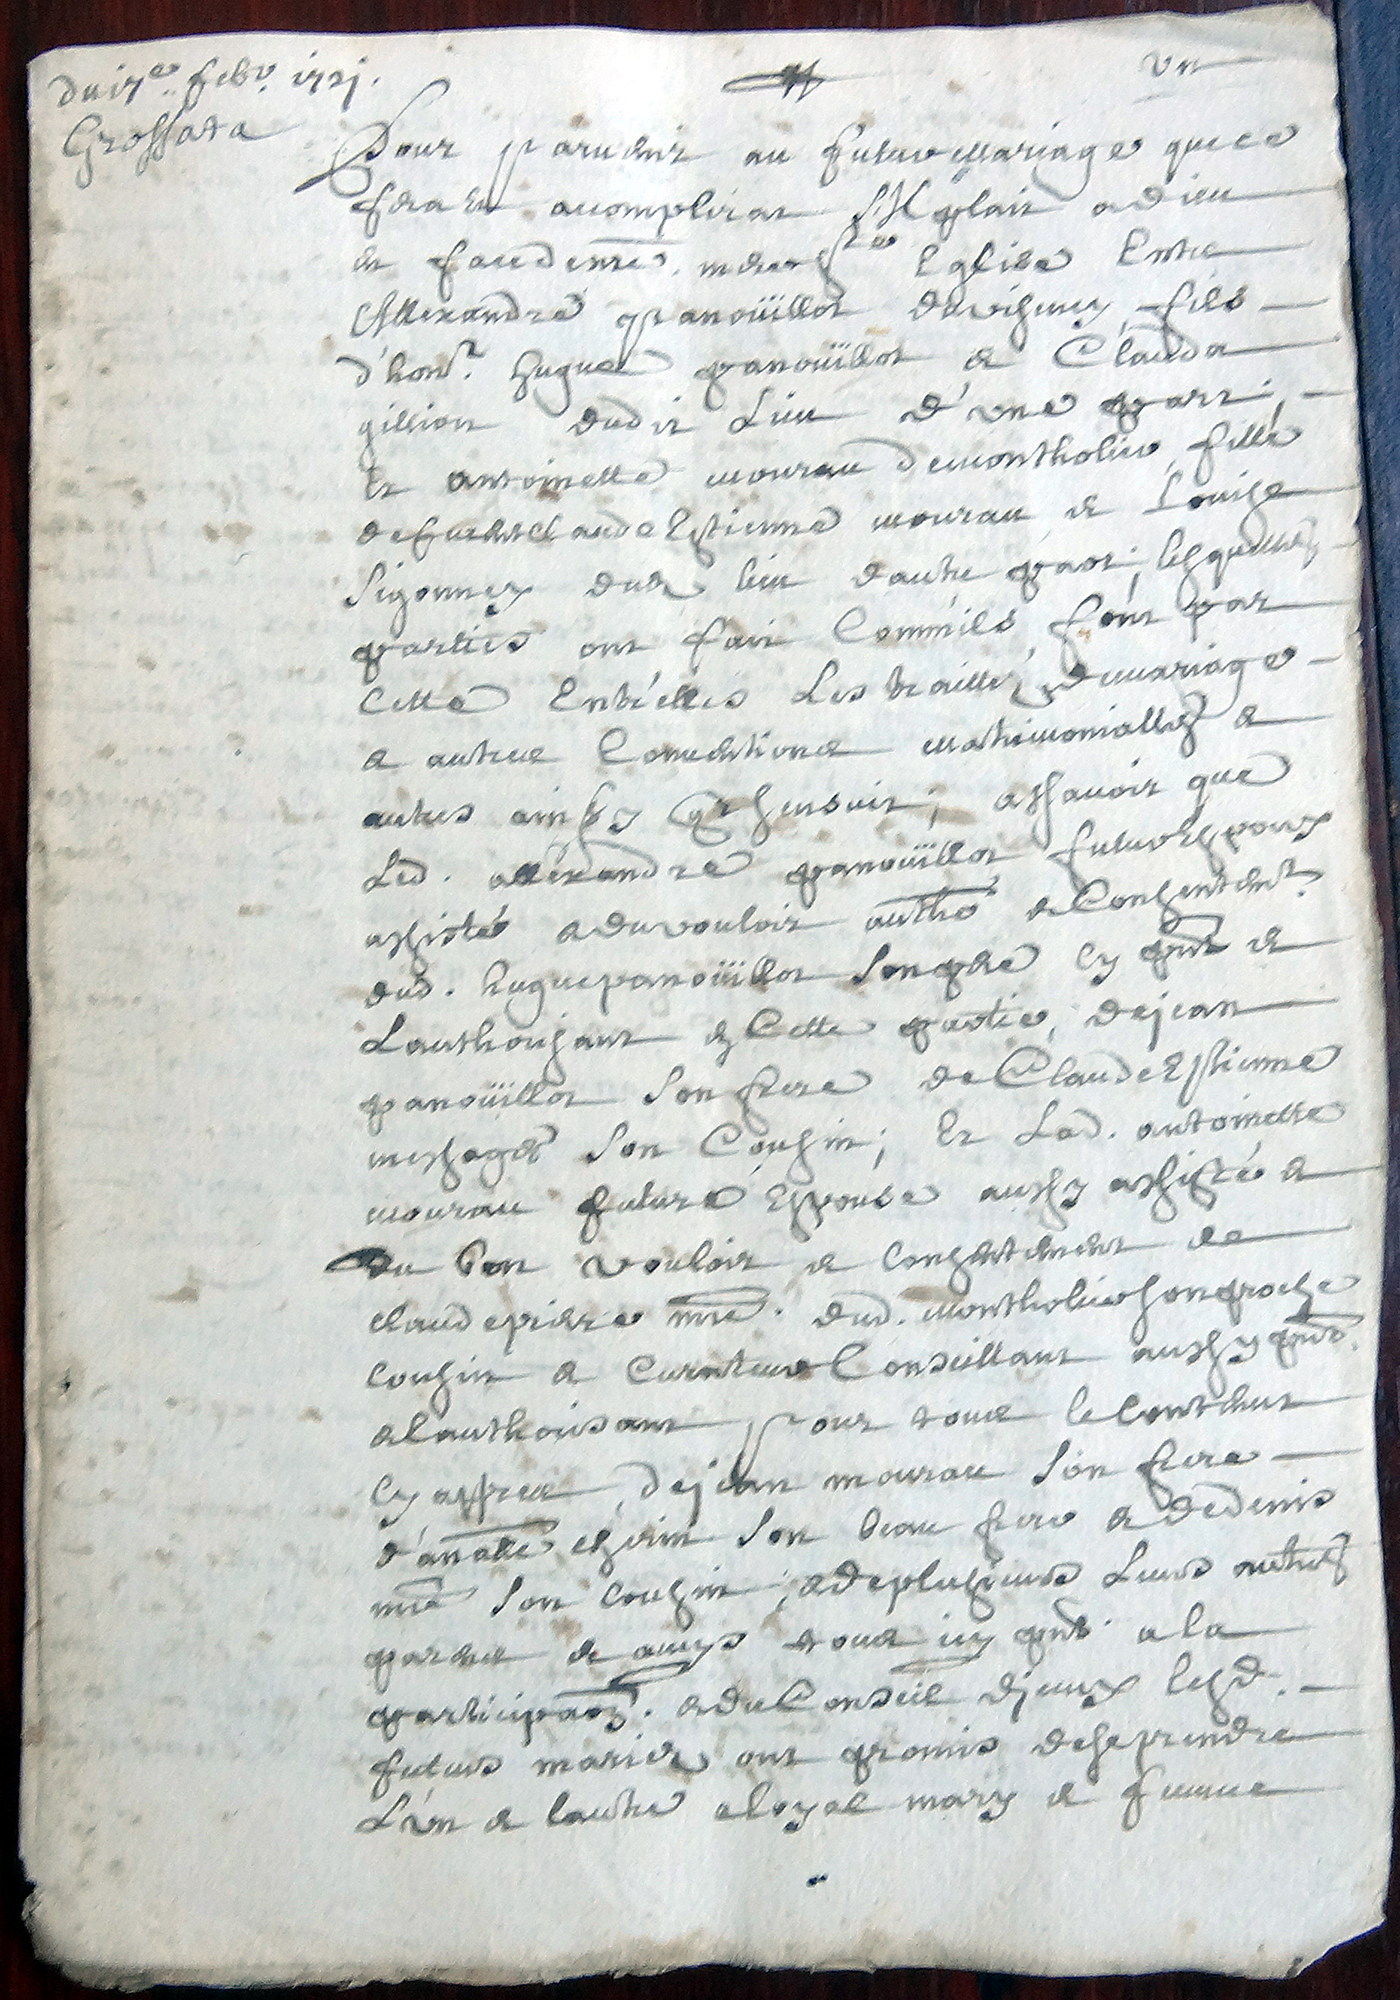 Du 17e. febv. 1721.
Grossata
Un
Pour parvenir au futur mariage que ce
fera et acomplirat S'Il plait a dieu
et face de nre. mere ste Eglise Entre
Allexandre panoüillot de vigney fils
d'honr. hugue panoüillot & Clauda
gillion dudit Lieu d'une part,
et antoinette mourau de montholier, fille
de fut Claude Estienne mourau & Louise
Sigonney dud. lieu dautre part; lesquelles
parties ont fait Comm'ils font par
Cette Entr'elles Les traittez de mariage
& autres Conventions matrimonialles &
autres ainsy qu'il sensuit; assavoir que
Led. allexandre panoüillot futur espoux
assisté & du vouloir autho & Consentemt.
dud. hugue panoüillot Son pere Cy pnt &
Lauthorisant de Cette partie, de jean
panoüillot Son frere de Claude Estienne
messager Son Cousin; Et Lad. antoinette
mourau future Espouse aussy assistée &
du bon vouloir & Consentement de
claude pierre mre. dud. montholier son proche
Cousin & Curateur Conseillant aussy pnt.
& lauthorisant pour tout le Contenut
Cy apprez, de jean mourau Son frere
d'anathoile Son beau frere & de denis
mre Son Cousin, & de plusieurs Leurs autres
parens & amys tous icy pnts. a la
participaon. & du Conseil d'jceux lesd.
futurs mariez ont promis de se prendre
L'vn & lautre a loyal mary & femme